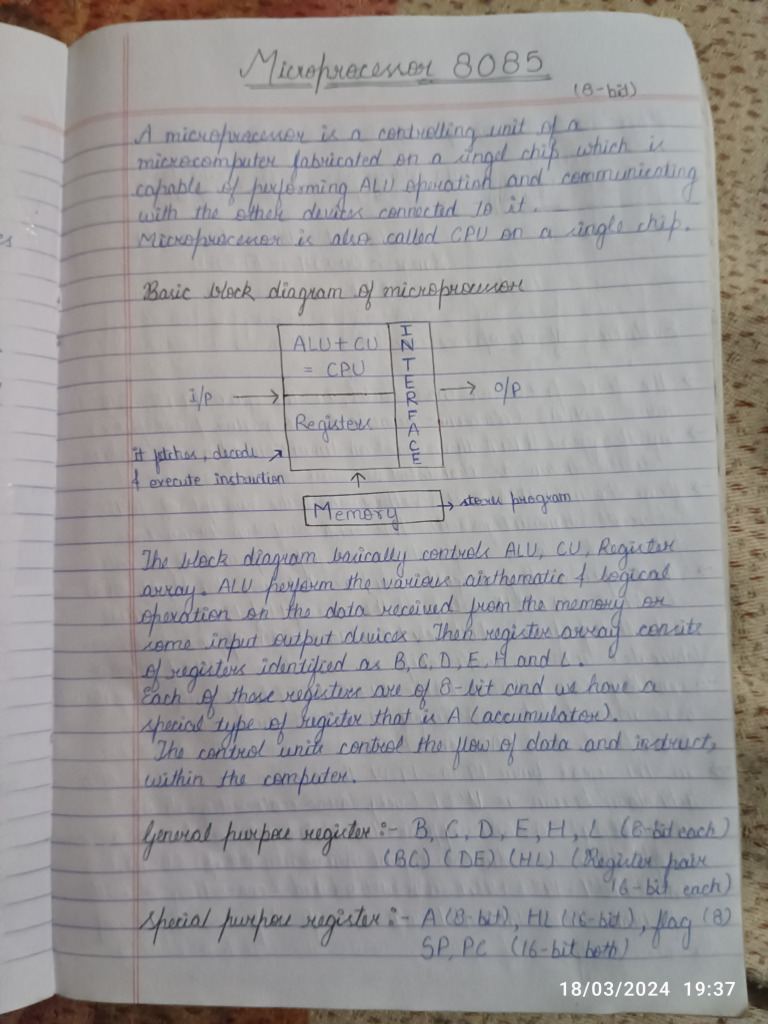 Microprocessor 8085
(8-bit)
A microprocessor is a controlling unit of a
microcomputer fabricated on a singel chip which is
capable of performing ALU operation and communicating
with the other devices connected to it.
Microprocessor is also called CPU on a single chip.
Basic block diagram of microprocessor
ALU + CU
= CPU
Registers
INTERFACE
i/p
o/p
it fetches, decode
& execute instruction
Memory
stores program
The block diagram basically controls ALU, CU, Register
array. ALU perform the various airthematic & logical
operation on the data received from the memory or
some input output devices. Then register array consits
of registers identified as B, C, D, E, H and L.
Each of those registers are of 8-bit and we have a
special type of register that is A (accumulator).
The control units control the flow of data and instruct,
within the computer.
General purpose register :- B, C, D, E, H, L (8-bit each)
(BC) (DE) (HL) (Register pair
16-bit each)
Special purpose register :- A (8-bit), HL (16-bit), flag (8)
SP, PC (16-bit both)
18/03/2024 19:37